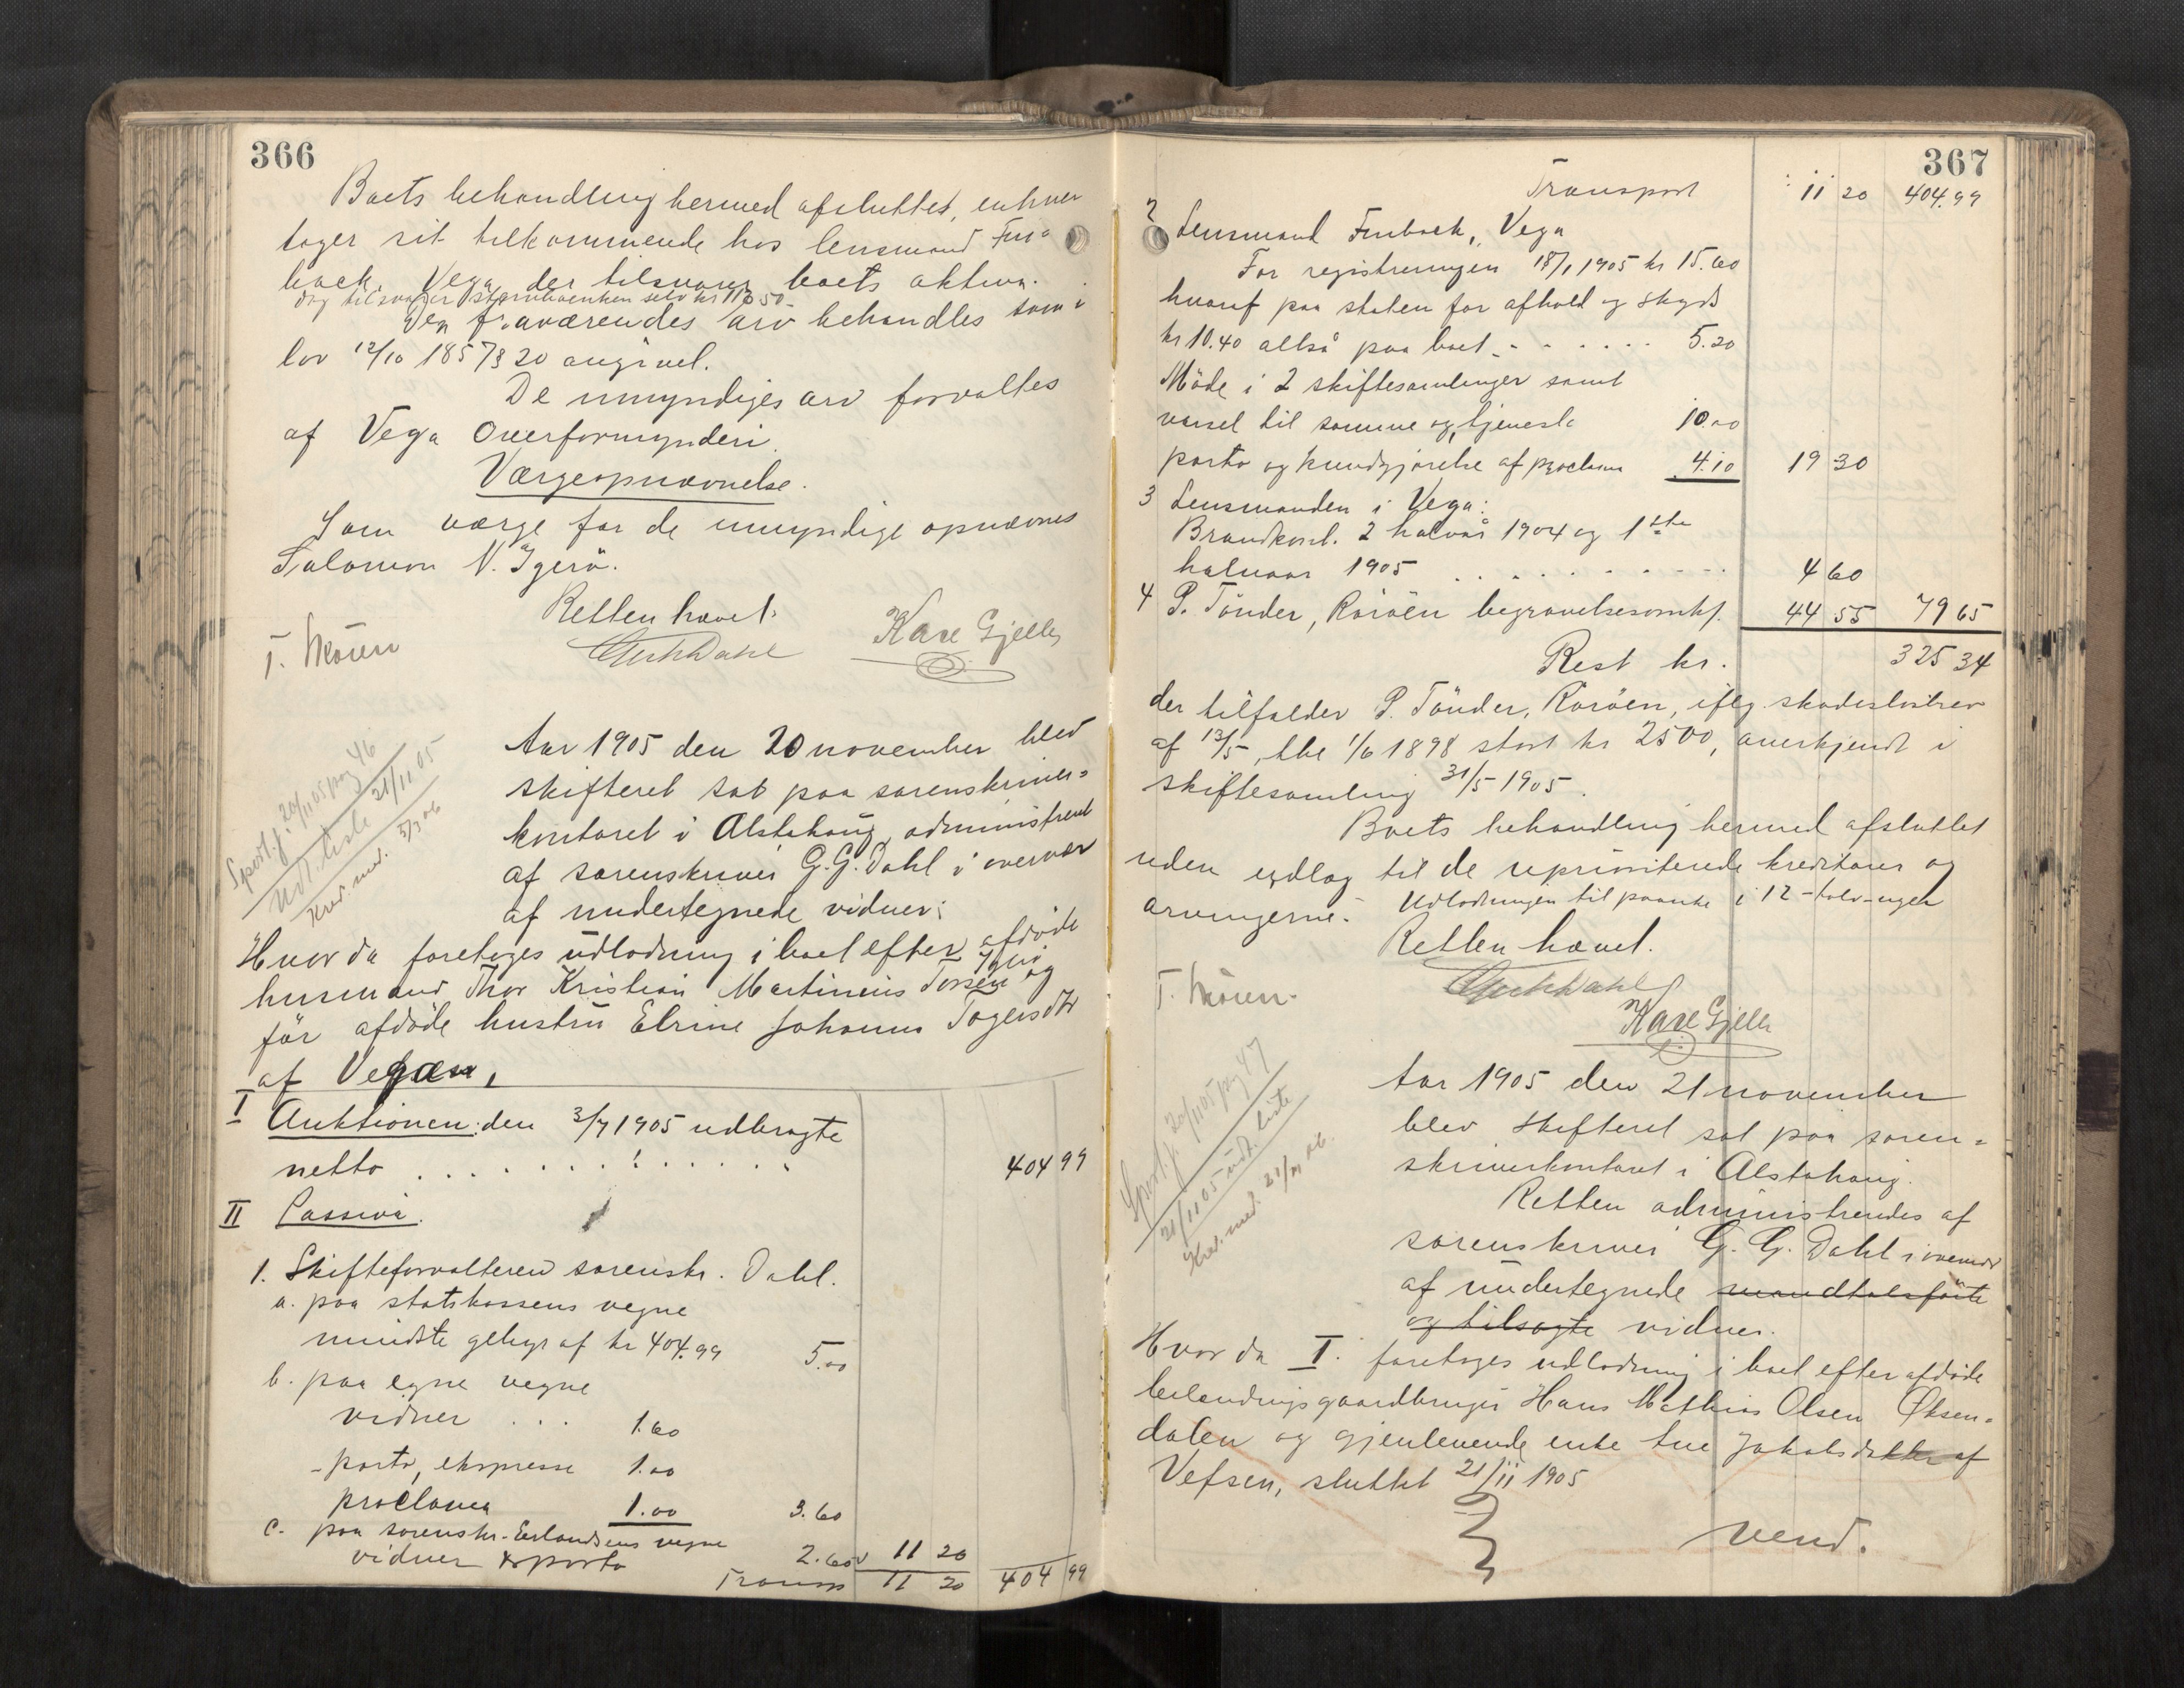 366
Boets behandling hermed afsluttet, enhver
tager sit tilkommende hos lensmand Fin=
back, Vega der tilsvarer boets aktiva.
dog tilsvarer stervboenken selv kr 113.50
Den fraværendes arv behandles som i
lov 12/10 1857 § 20 angivet.
De umyndiges arv forvaltes
af Vega Overformynderi.
Værgeopnævnelse.
Som værge for de umyndige opnævnes
Salomon N. Igerö.
Retten hævet.
T. Moren
Dahl
Kare Gjelle
Sport.j. 20/11 05 pag 46
Udl. liste 21/11 05
Krev. med. 5/3 06
Aar 1905 den 20 november blev
skifteret sat paa sorenskriver=
kontoret i Alstahoug, administreret
af sorenskriver G. G. Dahl i overvær
af undertegnede vidner:
Hvor da foretoges udlodning i boet efter afdöde
husmand Thor Kristian Martinius Torsen Igerö og
för afdöde hustru Elrine Johanna Togersdtr
af Vegøen,
I Auktionen: den 3/7 1905 udbragte
netto . . . . . . . . . . . . 404 99
II Passiva.
1. Skifteforvalteren sorenskr. Dahl.
a. paa statskassens vegne
mindste gebyr af kr 404.99 5.00
b. paa egne vegne
vidner . . . 1.60
- porto, ekspresse 1.00
proclama 1.00 3.60
c. paa sorenskr. Erlandsens vegne
vidner & porto 2.60 11 20
Transp 11 20 404 99
367
Transport 11 20 404.99
2 Lensmand Finback, Vega
For registreringen 18/1 1905 kr 15.60
hvoraf paa staten for afhold og skyds
kr 10.40 altså paa boet . . . . . . 5.20
Möde i 2 skiftesamlinger samt
varsel til samme og tjeneste 10.00
porto og kundgjörelse af proclama 4.10 19 30
3 Lensmanden i Vega:
Brandkont. 2 halvår 1904 og 1ste
halvaar 1905 . . . . . . . . . . 4 60
4 P. Tönder, Röröen begravelsesomk. 44 55 79 65
Rest kr. 325 34
der tilfalder P. Tönder, Röröen, iflg. skadeslosbrev
af 13/5, tbl. 1/6 1898 stort kr 2500, anerkjendt i
skiftesamling 31/5 1905.
Boets behandling hermed afsluttet
uden udlæg til de uprioriterede kreditorer og
arvingerne. Udlodningen til paanke i 12 - tolv - uger
Retten hævet.
T. Moren.
Dahl
Kare Gjelle
Sport.j. 20/11 05 pag 47
21/11 05 udl. liste
Krev. med. 21/11 06.
Aar 1905 den 21 november
blev skifteret sat paa soren=
skriverkontoret i Alstahaug.
Retten administreredes af
sorenskriver G. G. Dahl i overvær
af undertegnede mandtalsförte
og tilsagte vidner.
Hvor da I. foretoges udlodning i boet efter afdöde
bebandrings gaardbruger Hans Mathias Olsen Øksen=
dalen og gjenlevende enke Ane Jakobsdatter af
Vefsen, sluttet 21/11 1905
vend.